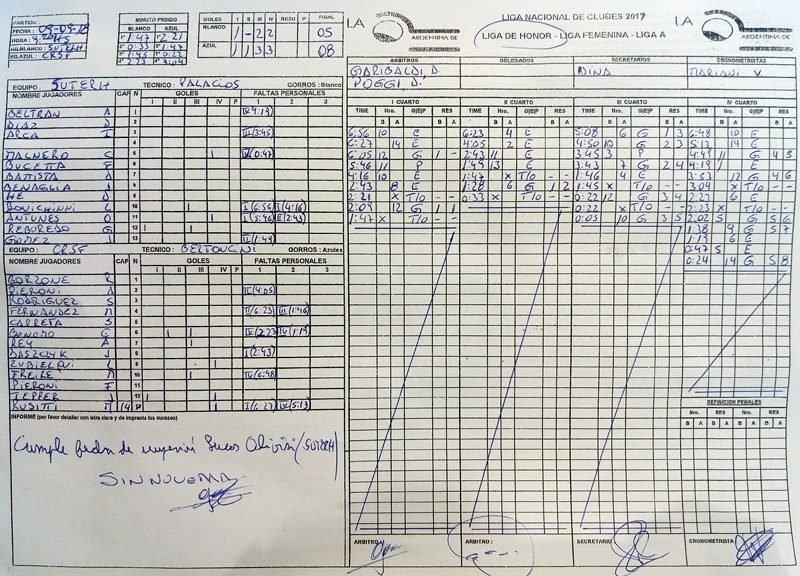 PARTIDO:
FECHA: 09-09-18
HORA:
EQ.BLANCO: SUTERH
EQ.AZUL: CRSF
MINUTO PEDIDO
BLANCO AZUL
1° 1:47 2° 2:21
1° 0:33 2° 1:47
1° 1:45 2° 0:22
2:23 3:04
GOLES I II III IV RESU P FINAL
BLANCO 1 - 2 2 05
AZUL 1 1 3 3 08
LA
ARGENTINA DE
LIGA NACIONAL DE CLUBES 2017
LIGA DE HONOR - LIGA FEMENINA - LIGA A
LA
ARGENTINA DE
ARBITROS DELEGADOS SECRETARIOS CRONOMETRISTAS
GARIBALDI, D. MARIANI V.
POGGI D.
EQUIPO : SUTERH TECNICO : PALACIOS GORROS : Blanco
NOMBRE JUGADORES CAP N GOLES FALTAS PERSONALES
I II III IV P 1 2 3
BELTRAN A 1 IV(4:19)
DIAZ D 2
ARCA I 3 III(3:45)
4
MAGNERO S 5 IV(0:47)
BUCETTA S 6
BATTISTA A 7
BENAGLIA J 8
HE D 9
BONICHINI L 10 I(6:56) I(4:16)
ANTUNES O 11 I(5:46) II(2:43)
REBOREDO G 12
GOMEZ J 13 II(1:49)
EQUIPO : CRSF TECNICO : BERTONCINI GORROS : Azules
NOMBRE JUGADORES CAP N GOLES FALTAS PERSONALES
I II III IV P 1 2 3
GORZONE R 1
PIERONI A 2 II(4:05)
RODRIGUEZ S 3
FERNANDEZ M 4 II(6:23) III(1:46)
CARRETA S 5
BONOMO G 6 IV(2:27) IV(1:19)
REY A 7
BASZCYK J 8 I(2:43)
ZUBIELQUI L 9
FREIRE M 10 IV(6:48)
PIERONI F 11
TEPPER J 12
RUSITTI M 14 I(6:27) IV(5:13)
INFORME (por favor detallar con letra clara y de imprenta los sucesos)
Cumple fecha de suspensión Lucas Olivini (SUTERH)
SIN NOVEDAD
I CUARTO II CUARTO III CUARTO IV CUARTO
TIME Nro. G|E|P RES TIME Nro. G|E|P RES TIME Nro. G|E|P RES TIME Nro. G|E|P RES
B A B A B A B A B A B A B A B A
6:56 10 E 6:23 4 E 5:08 6 G 1 3 6:48 10 E
6:27 14 E 4:05 2 E 4:50 10 G 2 3 5:13 14 E
6:05 12 G 1 2:43 11 E 3:45 3 P 4:49 11 G 4 3
5:46 11 P 1:49 13 E 3:43 7 G 2 4 4:19 1 E
4:16 10 E 1:47 x T/o - - 1:46 4 E 3:53 12 G 4 6
2:43 8 E 1:28 6 G 1 2 1:45 x T/o - - 3:04 x T/o - -
2:21 x T/o - - 0:33 x T/o - - 0:22 12 G 3 4 2:27 6 E
2:09 12 G 1 1 0:22 x T/o - - 2:23 x T/o - -
1:47 x T/o - - 0:05 10 G 3 5 2:02 5 G 5 6
1:38 9 G 5 7
1:19 6 E
0:47 5 E
0:24 14 G 5 8
DEFINICION PENALES
Nro. RES Nro. RES
B A B A B A B A
ARBITRO: ARBITRO : SECRETARIO : CRONOMETRISTA